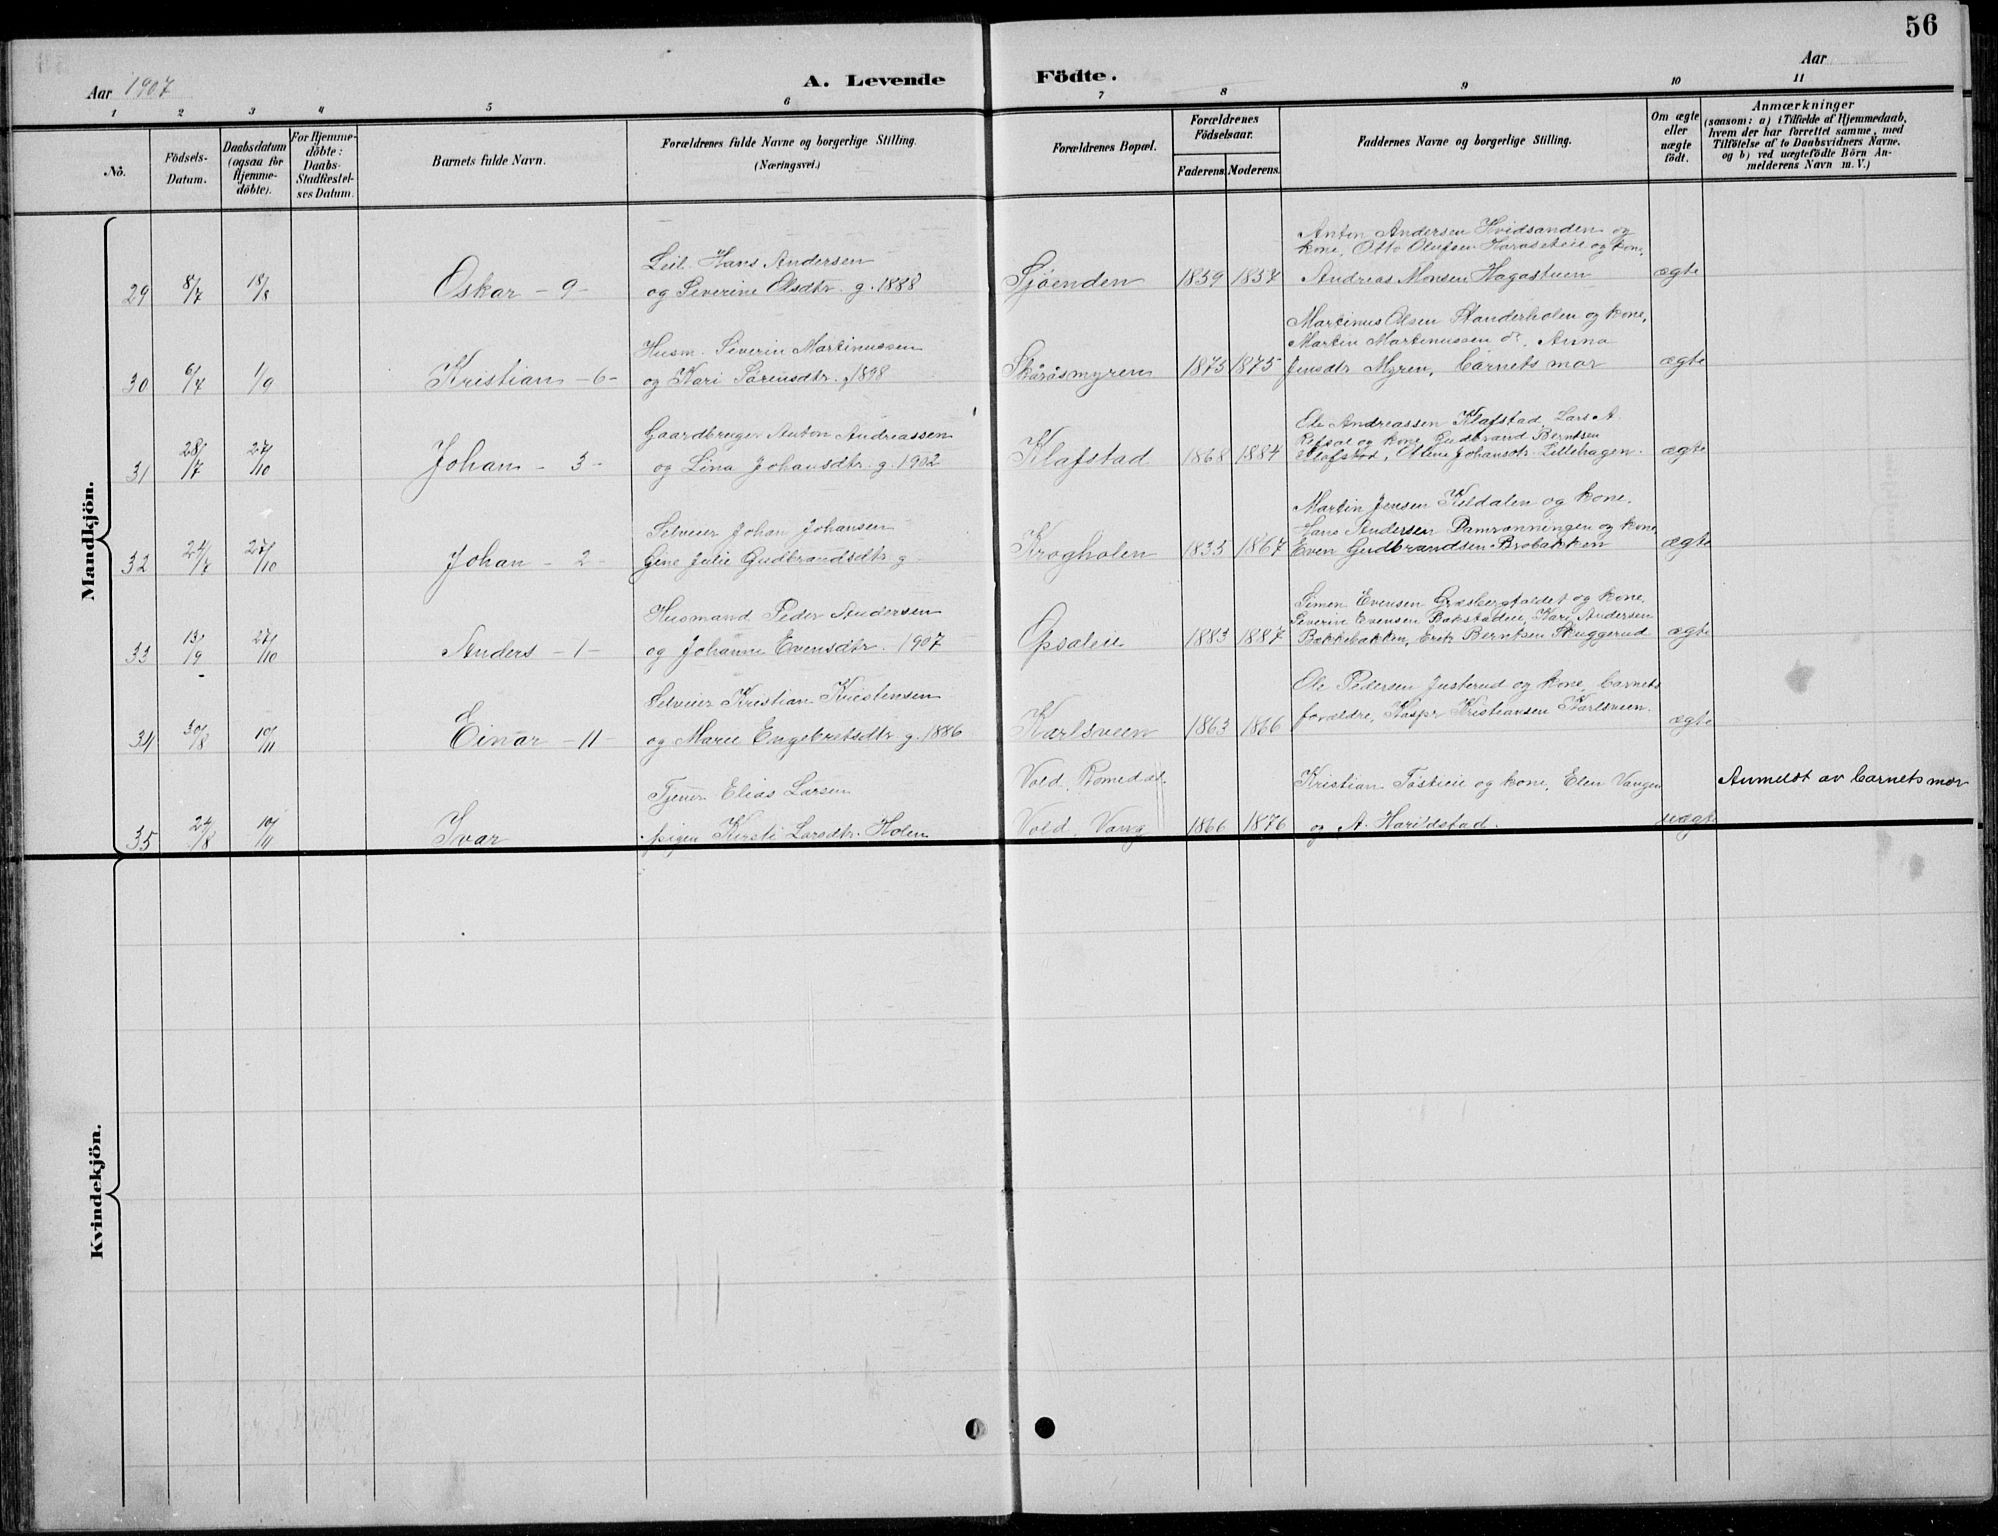 56
Aar 1907
A. Levende Födte.
Aar
1 2 3 4 5 6 7 8 9 10 11
No.
Födsels-Datum.
Daabsdatum (ogsaa for Hjemme-döbte).
For Hjemme-döbte: Daabs-Stadfestel-ses Datum.
Barnets fulde Navn.
Forældrenes fulde Navne og borgerlige Stilling.
(Næringsvei.)
Forældrenes Bopæl.
Forældrenes Födselsaar.
Faderens. Moderens.
Faddernes Navne og borgerlige Stilling.
Om ægte eller uægte födt.
Anmærkninger
(saasom: a) i Tilfælde af Hjemmedaab,
hvem der har forrettet samme, med
Tilföielse af to Daabsvidners Navne.
og b) ved uægtefödte Börn An-
melderens Navn m. V.)
Mandkjön.
Anton Andersen Hvidsanden og
Leil. Hans Andersen kone, Otto Olufsen Haraseteie og kone,
29 8/7 18/8 Oskar - 9 - og Severine Olsdtr. g. 1888 Sjöenden 1859 1857 Andreas Monsen Hagastuen ægte
Martinus Olsen Standerholen og kone,
Husm. Severin Martinussen Martin Martinussen do, Anna
30 6/7 1/9 Kristian - 6 - og Kari Sörensdtr. g. 1898 Skåråsmyren 1873 1875 Jensdtr Myren, barnets mor ægte
Gaardbruger Anton Andreassen Ole Andreassen Klafstad, Lars A.
Refsal og kone, Gudbrand Berntsen
31 28/7 27/10 Johan - 3 - og Lina Johansdtr. g. 1902 Klafstad 1868 1884 Klafstad, Oline Johansdtr. Lillehagen. ægte
Martin Jensen Keldalen og kone.
Selveier Johan Johansen Hans Andersen Damrønningen og kone,
32 24/7 27/10 Johan - 2 - Gine Julie Gudbrandsdtr g. Krogholen 1835 1867 Even Gudbrandsen Brobakken ægte
Simen Evensen Græsbergfaldet og kone,
Husmand Peder Andersen Severine Evensen Bakstadeie, Kari Andersen
33 13/9 27/10 Anders - 1 - og Johanne Evensdtr. 1907 Opsaleie 1883 1887 Bakkebakken, Erik Berntsen Skuggerud ægte
Selveier Kristian Kristensen Ole Pedersen Justerud og kone, barnets
34 30/8 10/11 Einar - 11 - og Marie Engebretsdtr. g. 1886 Karlsveen 1863 1866 forældre, Kaspr Kristiansen Karlsveen. ægte
Tjener Elias Larsen Vold. Romedal Kristian Töstieie og kone, Elen Vangen Anmeldt av barnets mor
35 24/8 10/11 Ivar pigen Kersti Larsdtr. Holen Vold. Vang 1866 1876 og A. Harildstad. uægte
Kvindekjön.